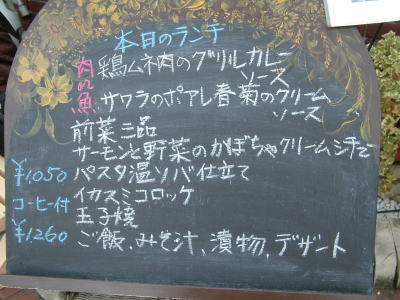 本日のランチ
肉 鶏ムネ肉のグリルカレー
ソース
or
魚 サワラのポアレ春菊のクリーム
ソース
前菜三品
サーモンと野菜のかぼちゃクリームシチュー
¥1,050 パスタ温ソバ仕立て
コーヒー付 イカスミコロッケ
玉子焼
¥1,260 ご飯、みそ汁、漬物、デザート